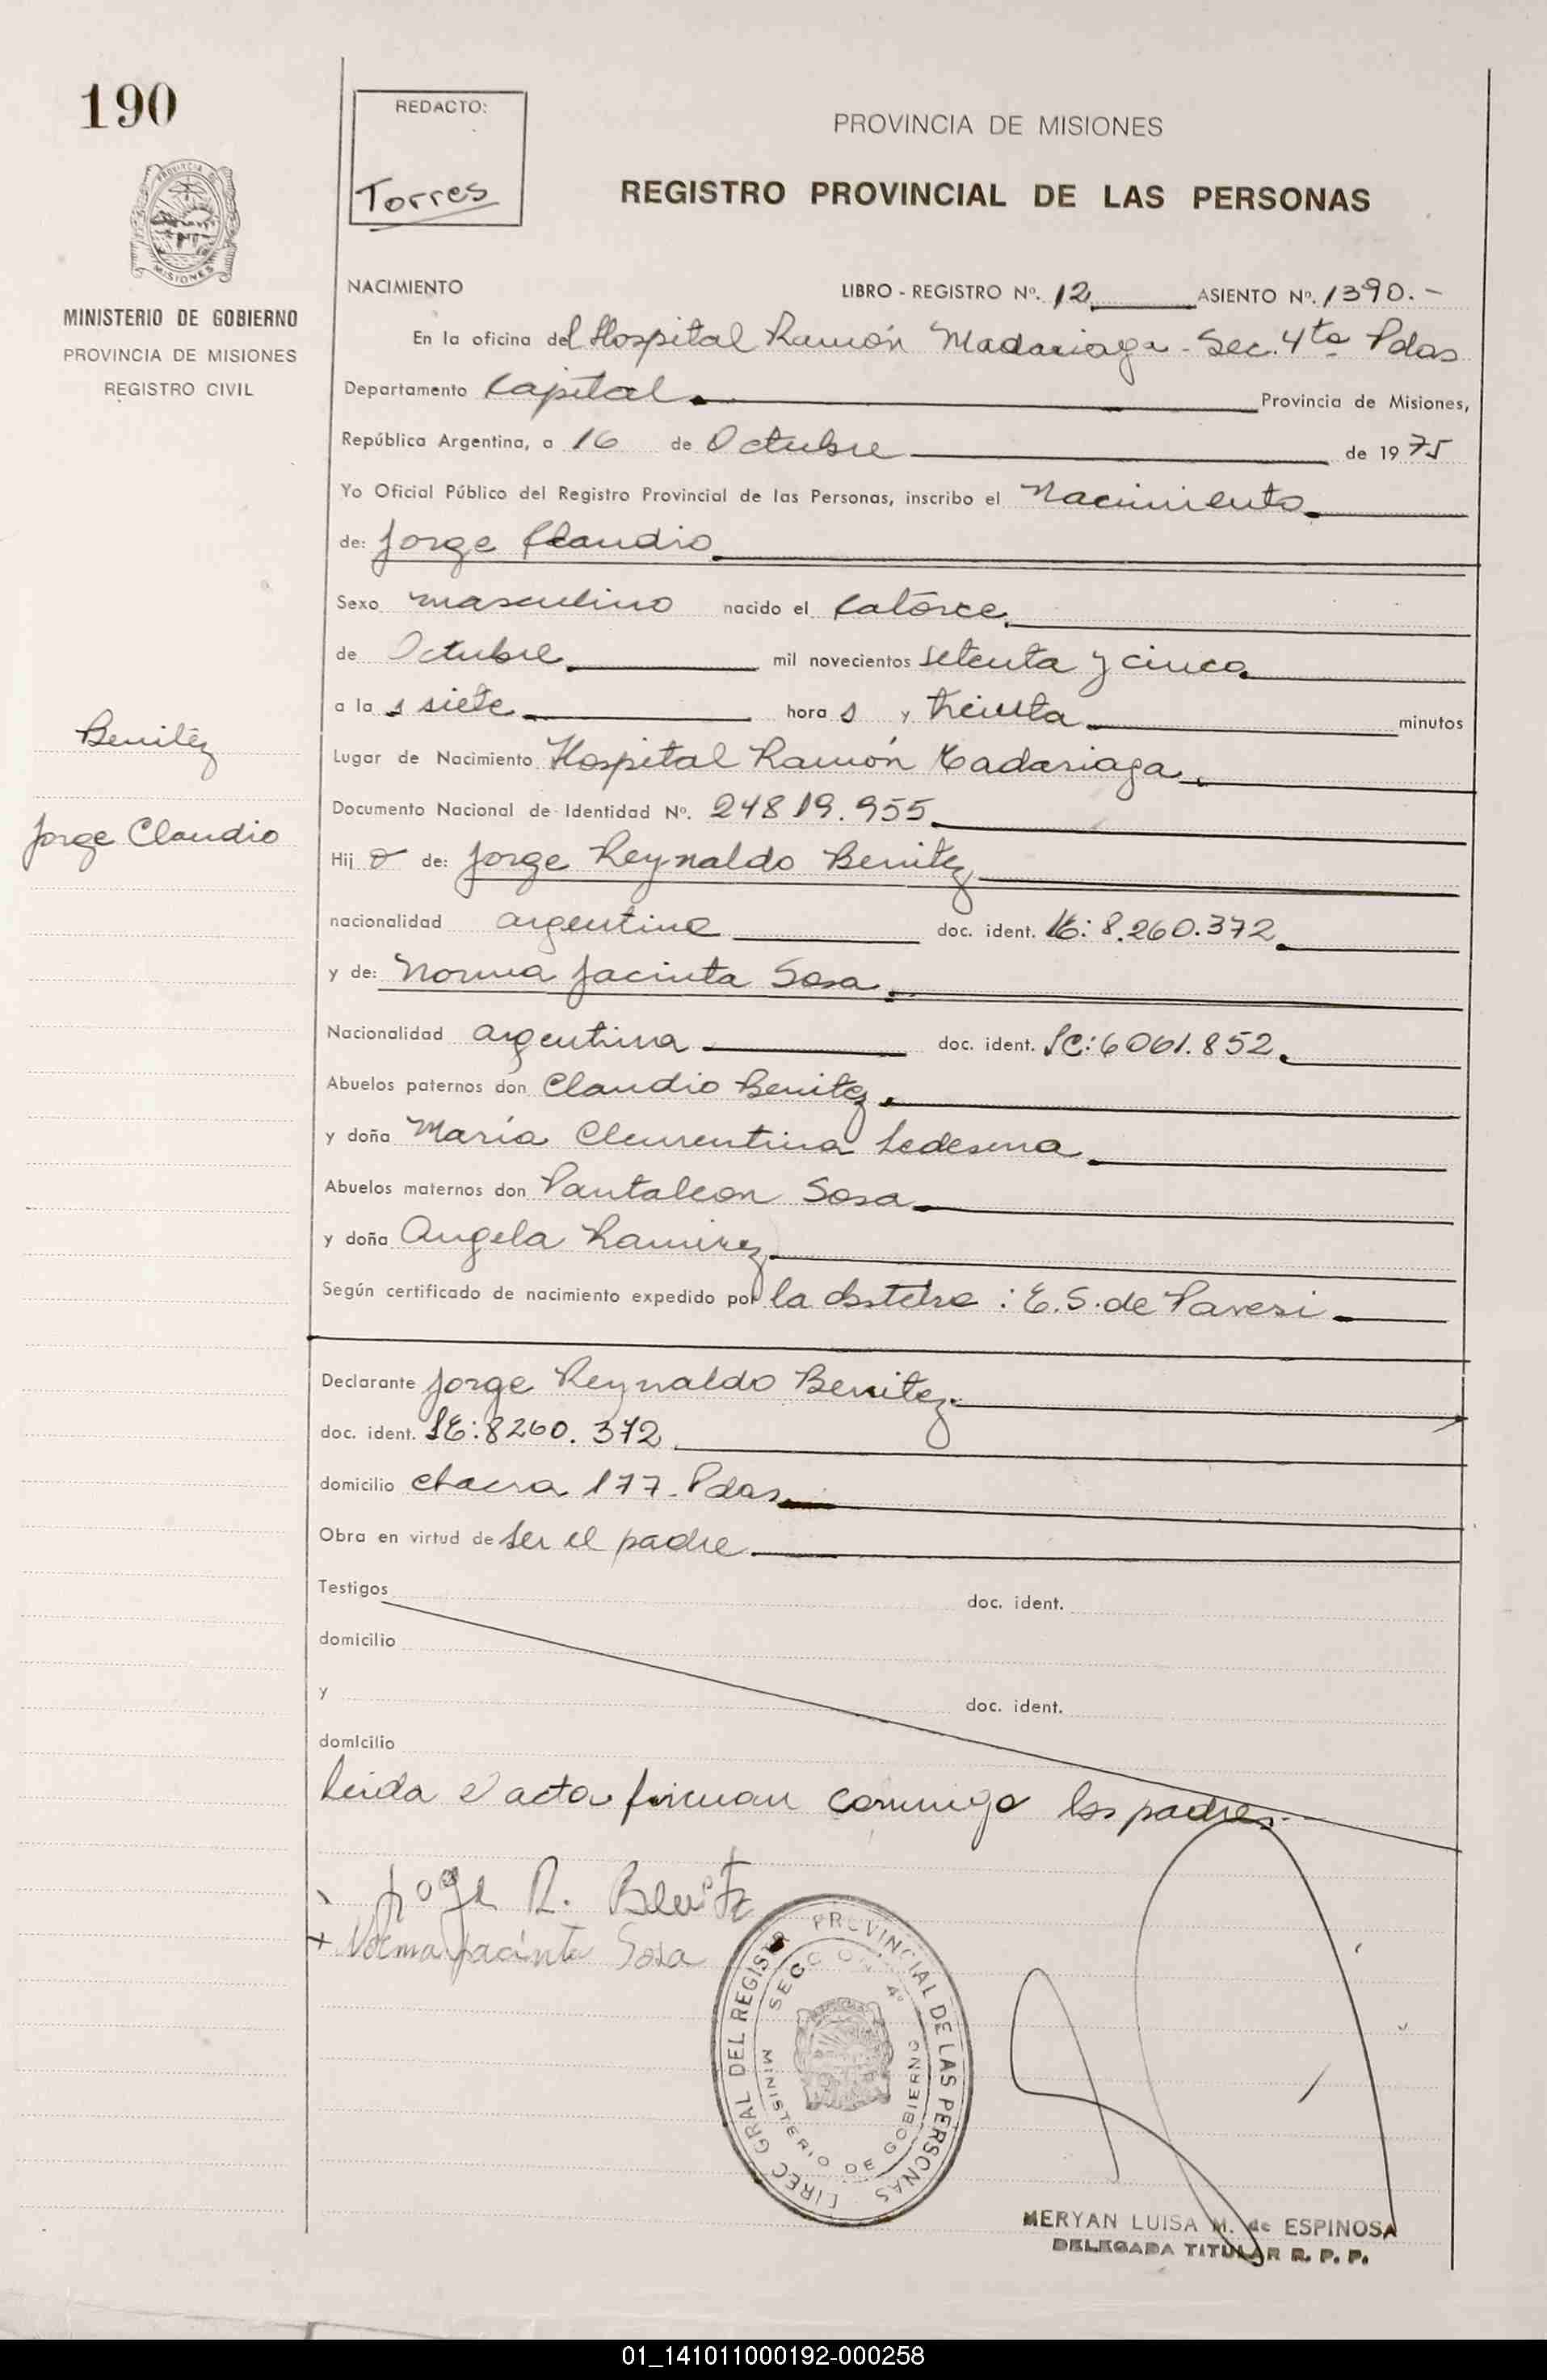 190
REDACTO:
Torres
PROVINCIA DE MISIONES
REGISTRO PROVINCIAL DE LAS PERSONAS
PROVINCIA DE
MISIONES
MINISTERIO DE GOBIERNO
PROVINCIA DE MISIONES
REGISTRO CIVIL
NACIMIENTO LIBRO - REGISTRO Nº. 12 ASIENTO Nº. 1390.-
En la oficina del Hospital Ramón Madariaga - Sec. 4ta Pdas
Departamento Capital Provincia de Misiones,
República Argentina, a 16 de Octubre de 1975
Yo Oficial Público del Registro Provincial de las Personas, inscribo el Nacimiento
de: Jorge Claudio
Sexo masculino nacido el Catorce
de Octubre mil novecientos setenta y cinco
a la s siete hora s y treinta minutos
Benitez
Lugar de Nacimiento Hospital Ramón Madariaga
Documento Nacional de Identidad Nº. 24819.955
Jorge Claudio
Hij o de: Jorge Reynaldo Benitez
nacionalidad argentino doc. ident. LE: 8.260.372
y de: Norma Jacinta Sosa
Nacionalidad argentina doc. ident. LC: 6061.852
Abuelos paternos don Claudio Benitez
y doña María Clementina Ledesma
Abuelos maternos don Pantaleon Sosa
y doña Angela Ramirez
Según certificado de nacimiento expedido por la obstetra : E. S. de Pavesi
Declarante Jorge Reynaldo Benitez
doc. ident. LE: 8260.372
domicilio chacra 177 - Pdas
Obra en virtud de ser el padre
Testigos doc. ident.
domicilio
y doc. ident.
domicilio
Leida el acta firman conmigo los padres.-
Jorge R. Benitez
+ Norma Jacinta Sosa
DIREC GRAL DEL REGISTRO PROVINCIAL DE LAS PERSONAS
SECCION 4º
MINISTERIO DE GOBIERNO
MERYAN LUISA M. de ESPINOSA
DELEGADA TITULAR R. P. P.
01_141011000192-000258